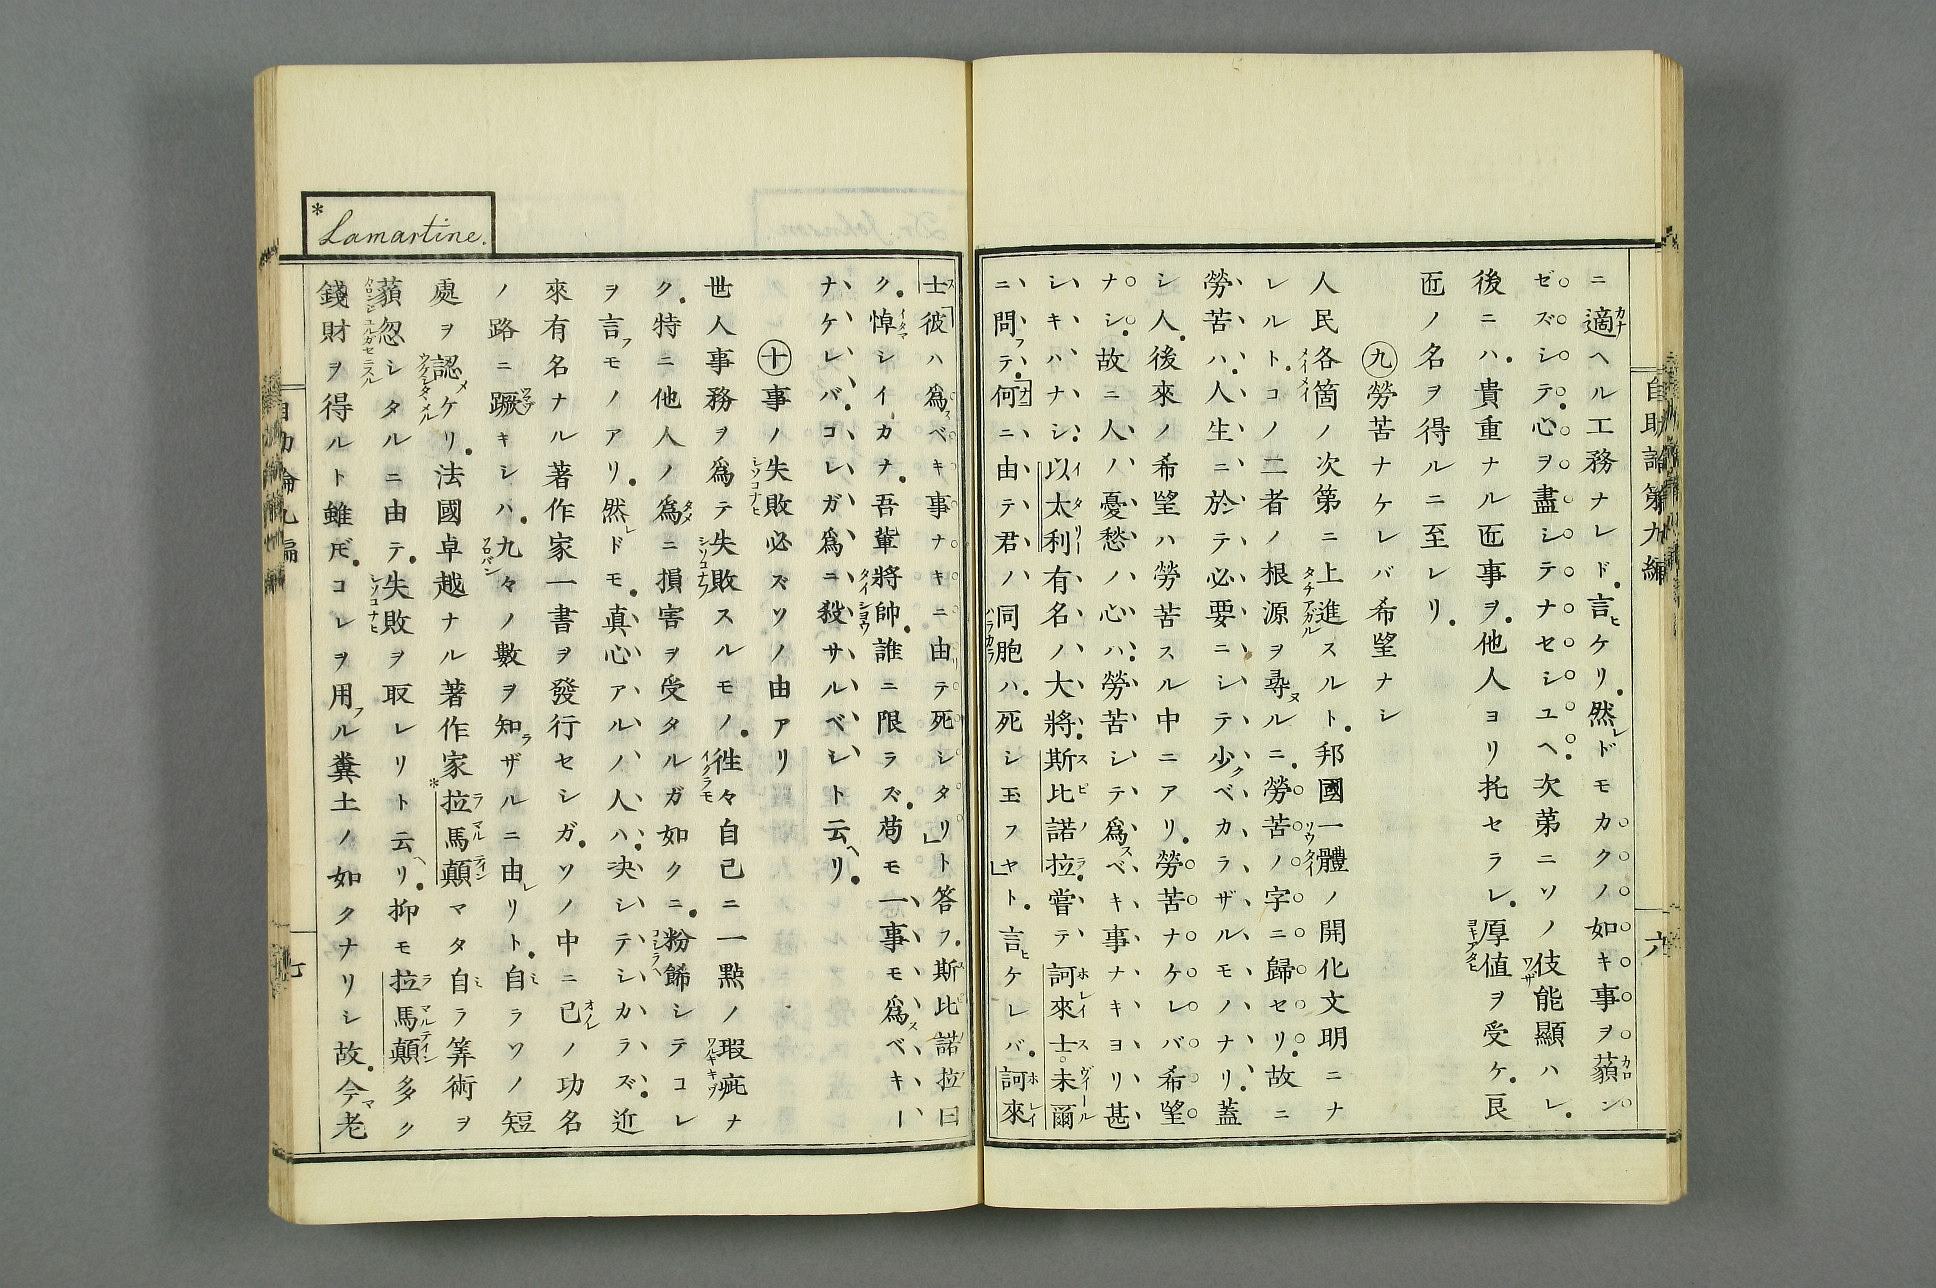 自助論第九編
六
ニ適ヘル工務ナレド。言ケリ。然ドモカクノ如キ事ヲ藐ン
ゼズシテ。心ヲ盡シテナセシユヘ。次第ニソノ伎能顯ハレ。
後ニハ。貴重ナル匠事ヲ。他人ヨリ托セラレ。厚値ヲ受ケ。良
匠ノ名ヲ得ルニ至レリ。
㊈勞苦ナケレバ希望ナシ
人民各箇ノ次第ニ上進スルト。邦國一體ノ開化文明ニナ
レルト。コノ二者ノ根源ヲ尋ルニ。勞苦ノ字ニ歸セリ。故ニ
勞苦ハ。人生ニ於テ必要ニシテ少ベカラザルモノナリ。蓋
シ人。後來ノ希望ハ勞苦スル中ニアリ。勞苦ナケレバ希望
ナシ。故ニ人ノ憂愁ノ心ハ。勞苦シテ爲ベキ事ナキヨリ甚
シキハナシ。以太利有名ノ大將。斯比諾拉。嘗テ訶來士。未爾
ニ問テ。何ニ由テ君ノ同胞ハ。死シ玉フヤト。言ケレバ。訶來
Lamartine.
士「彼ハ爲ベキ事ナキニ由テ死シタリ」ト答フ。斯比諾拉曰
ク。悼シイカナ。吾輩將帥。誰ニ限ラズ。苟モ一事モ爲ベキー
ナケレバ。コレガ爲ニ殺サルベシト云ヘリ。
㊉事ノ失敗必ズソノ由アリ
世人事務ヲ爲テ失敗スルモノ。徃々自己ニ一點ノ瑕疵ナ
ク。特ニ他人ノ爲ニ損害ヲ受タルガ如クニ。粉餙シテコレ
ヲ言フモノアリ。然ドモ。眞心アルノ人ハ。决シテシカラズ。近
來有名ナル著作家一書ヲ發行セシガ。ソノ中ニ己ノ功名
ノ路ニ蹶キシハ。九々ノ數ヲ知ザルニ由リト。自ラソノ短
處ヲ認メケリ。法國卓越ナル著作家*拉馬顚マタ自ラ筭術ヲ
藐忽シタルニ由テ。失敗ヲ取レリト云ヘリ。抑モ拉馬顚多ク
錢財ヲ得ルト雖ドモ。コレヲ用フル糞土ノ如クナリシ故。今老
自助論九編
七